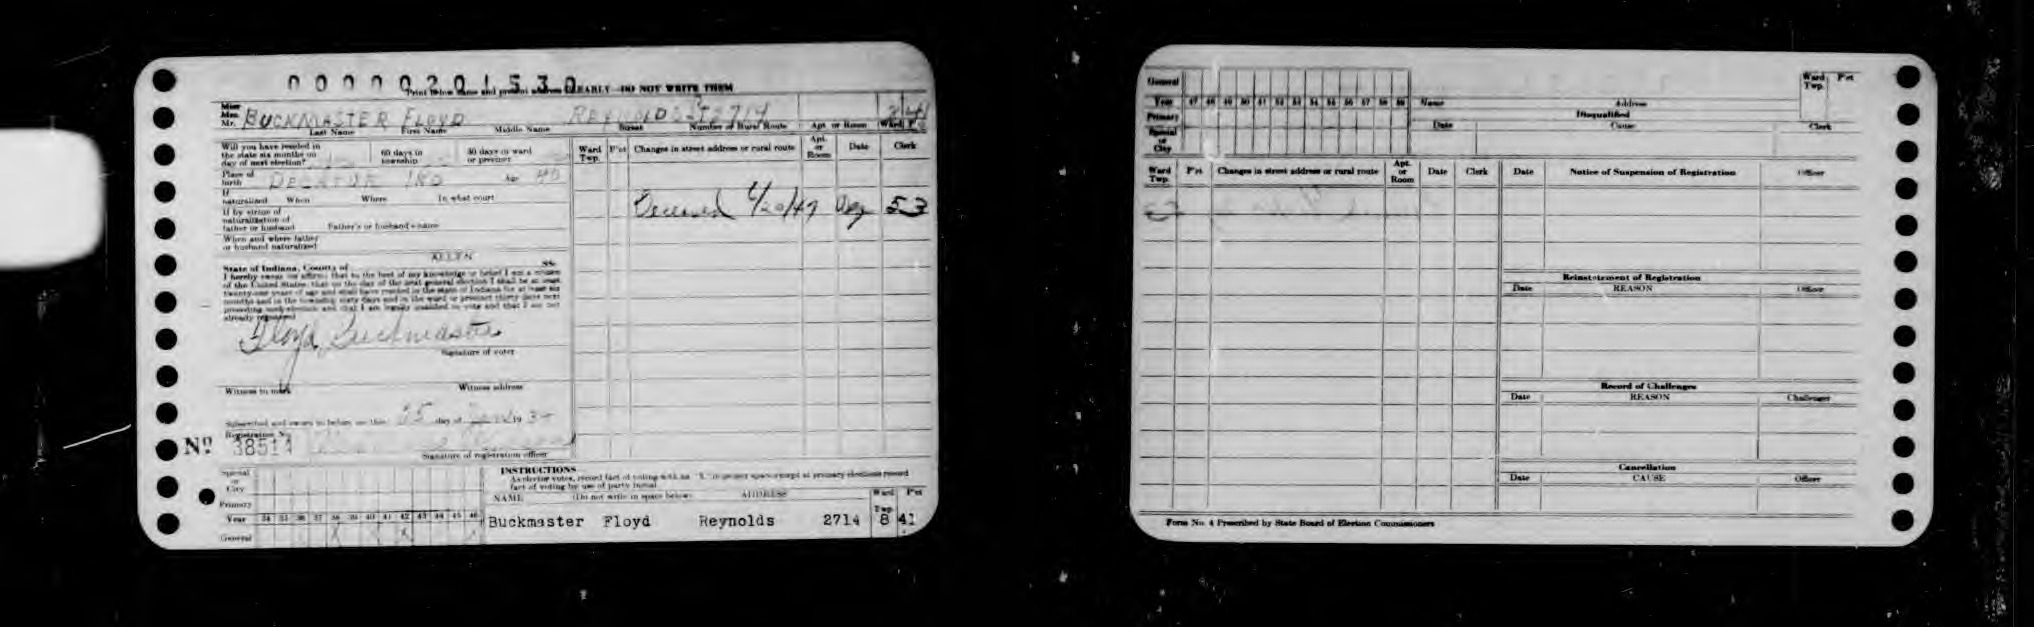 00000201530
Print below name and present address CLEARLY—DO NOT WRITE THEM
Miss
Mrs.
Mr. BUCKMASTER FLOYD REYNOLDS ST 2714 41
Last Name First Name Middle Name Street Number of Rural Route Apt. or Room Ward
Will you have resided in
the state six months on
day of next election?
60 days in
township
30 days in ward
or precinct
Place of
birth DECATUR IND Age 40
If
naturalized When Where In what court
If by virtue of
naturalization of
father or husband Father's or husband's name
When and where father
or husband naturalized
State of Indiana, County of ALLEN SS:
I hereby swear (or affirm) that to the best of my knowledge or belief I am a citizen
of the United States; that on the day of the next general election I shall be at least
twenty-one years of age and shall have resided in the state of Indiana for at least six
months and in the township sixty days and in the ward or precinct thirty days next
preceding such election and that I am legally entitled to vote and that I am not
already registered
Floyd Buckmaster
Signature of voter
Witness to mark Witness address
Subscribed and sworn to before me this 25 day of 19 34
Registration No.
Nº 38514
Signature of registration officer
Ward Twp. P'ct Changes in street address or rural route Apt. or Room Date Clerk
Deceased 4/20/47 53
Special
or
City
Primary
Year 34 35 36 37 38 39 40 41 42 43 44 45 46
General X X X
INSTRUCTIONS
As elector votes, record fact of voting with an "X" in proper space except at primary elections record
fact of voting by use of party initial
NAME (Do not write in space below) ADDRESS Ward Twp. P'ct
Buckmaster Floyd Reynolds 2714 8 41
General
Year 47 48 49 50 51 52 53 54 55 56 57 58 59
Primary
Special
or
City
Name Address Ward Twp. P'ct
Disqualified
Date Cause Clerk
Ward Twp. P'ct Changes in street address or rural route Apt. or Room Date Clerk
Date Notice of Suspension of Registration Officer
Reinstatement of Registration
Date REASON Officer
Record of Challenges
Date REASON Challenger
Cancellation
Date CAUSE Officer
Form No. 4 Prescribed by State Board of Election Commissioners